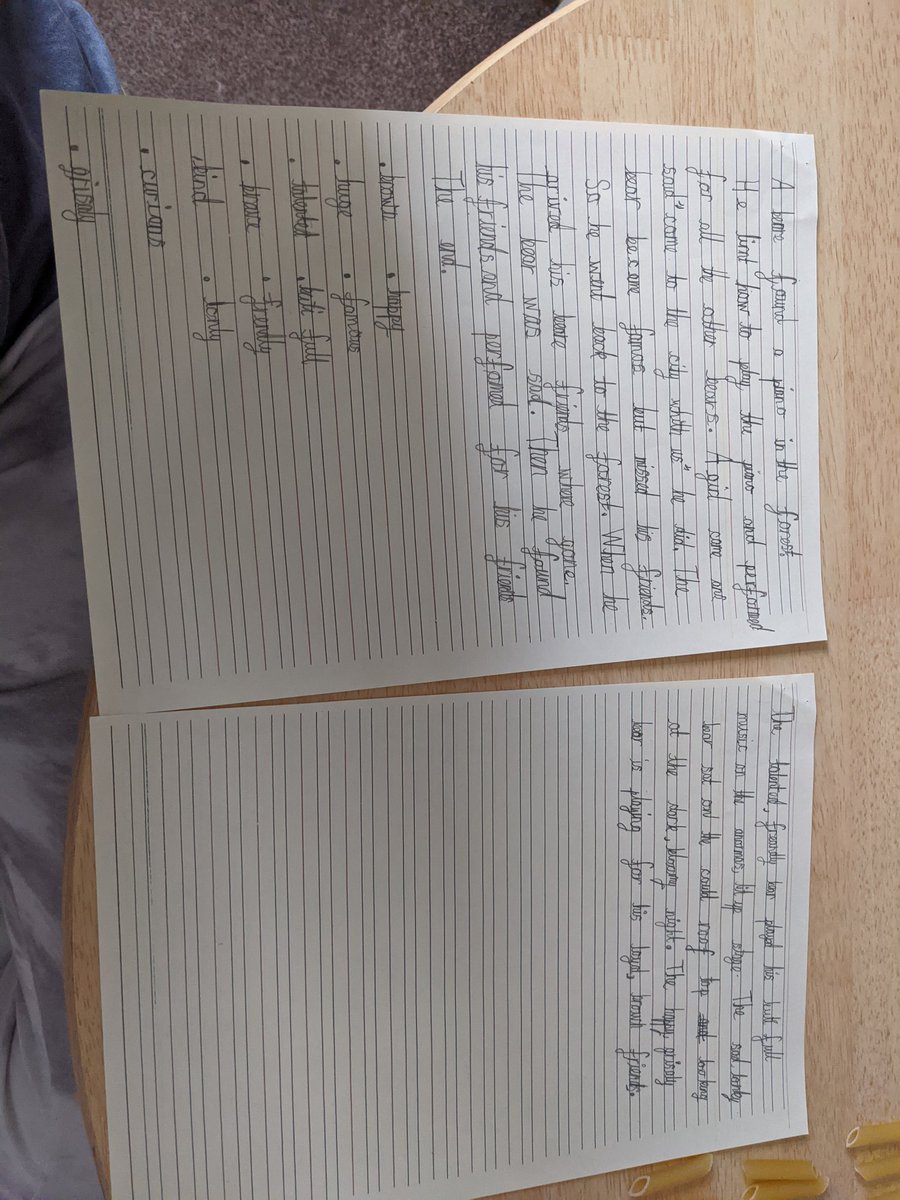 A beare found a piano in the forest.
He lint how to play the piano and performed
for all the other bears. A gid came and
said "come to the city whith us" he did. The
bear become famos but missed his friends.
So he went back to the forest. When he
arived his beare friends where gone.
The bear was sad. Then he found
his friends and perfamed for his friends
The end.
• brown • happy
• huge • famous
• talented • buti full
• brave • frendly
• kind • lonly
• curious
• grisely
The talented, freandly bear played his buti full
music on the anormos, lit up stage. The sad, lonley
bear sat on the could roof top looking
at the dark, bloomy night. The happy, grisely
bear is playing for his loyd, brown friends.